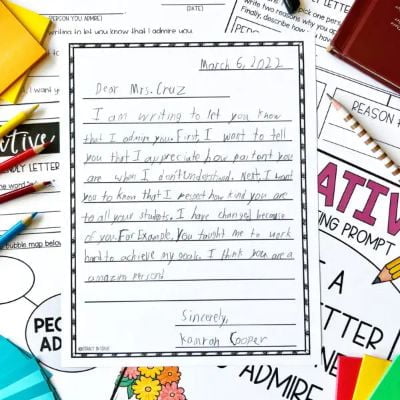 (PERSON YOU ADMIRE)
(DATE)
writing to let you know that I admire you.
March 6, 2022
Dear Mrs. Cruz
I am writing to let you know
that I admire you. First, I want to tell
you that I appreciate how patient you
are when I don't understand. Next, I want
you to know that I respect how kind you are
to all your students. I have changed because
of you. For Example, you taught me to work
hard to achieve my goals. I think you are a
amazing person!
Sincerely,
Kamran Cooper
pick one person
Finally, describe how
write two reasons why you
REASON
ATIV
NG PROMPT
A
TTER
NE
ADMIRE
LY LETTER
bubble map below
PEO
AD